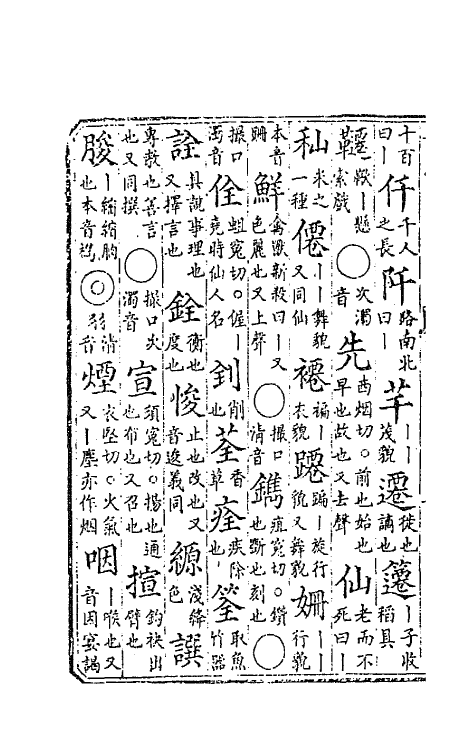 十百曰丨 仟 千人之長 阡 路南北曰丨 芊 丨丨茂貌 遷 徙也謫也 丨子收稻具
韆 鞦丨懸索戲 ○ 次濁音 先 西烟切。前也始也早也故也又去聲 仙 老而不死曰丨
秈 米之一種 僊 丨丨舞貌又同仙 褼 褊丨衣貌 躚 蹁丨旋行貌又舞貌 姍 丨丨行貌
本音珊 鮮 禽獸新殺曰丨又色麗也又上聲 ○ 撮口清音 鐫 疽寃切。鑽也斷也刻也 ○
撮口濁音 佺 蛆寃切。偓丨堯時仙人名 刋 削也 荃 香草 痊 疾除也 筌 取魚竹器
詮 具說事理也又擇言也 銓 衡也度也 悛 止也改也又音逡義同 縓 淺絳色 譔
專敎也善言也又同撰 ○ 撮口次濁音 宣 須寃切。揚也通也布也又召也 揎 鈎袂出臂也
朘 丨縮縮朒也本音 ◎ 羽清音 煙 衣堅切。火氣又丨塵亦作烟 咽 丨喉也又音因宴謁